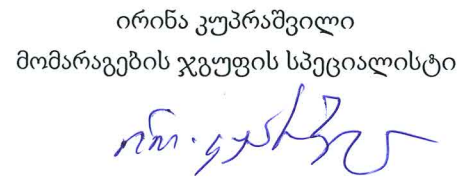 ირინა კუპრაშვილი
მომარაგების ჯგუფის სპეციალისტი